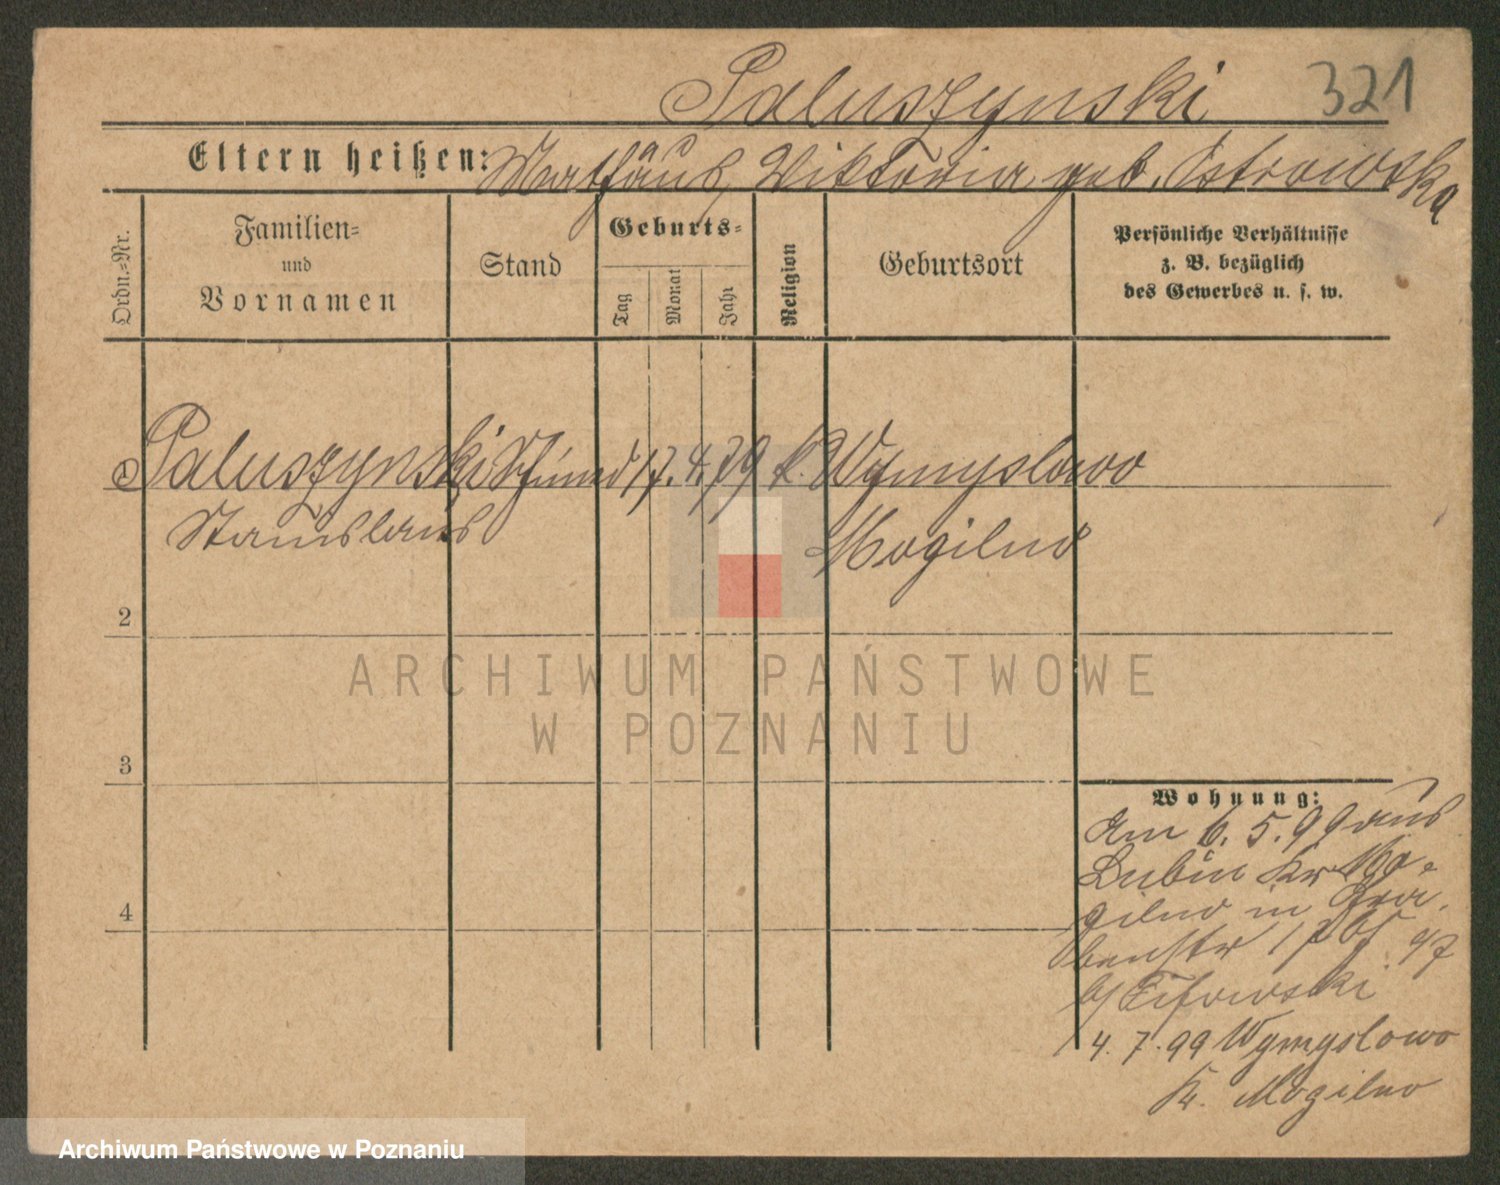 Paluszynski 321
Eltern heißen: Mathäus, Viktoria geb. Ostrowska
Ordn.-Nr.
Familien-
und
Vornamen
Stand
Geburts-
Tag
Monat
Jahr
Religion
Geburtsort
Persönliche Verhältnisse
z. B. bezüglich
des Gewerbes u. s. w.
1 Paluszynski 17. 4. 79 k. Wymyslowo
Stanislaus Mogilno
2
3
4
Wohnung:
Am 6. 5. 99 aus
Lubin Kr Mo-
gilno in Gra-
benstr 1
b/
4. 7. 99 Wymyslowo
Kr. Mogilno
ARCHIWUM PAŃSTWOWE
W POZNANIU
Archiwum Państwowe w Poznaniu